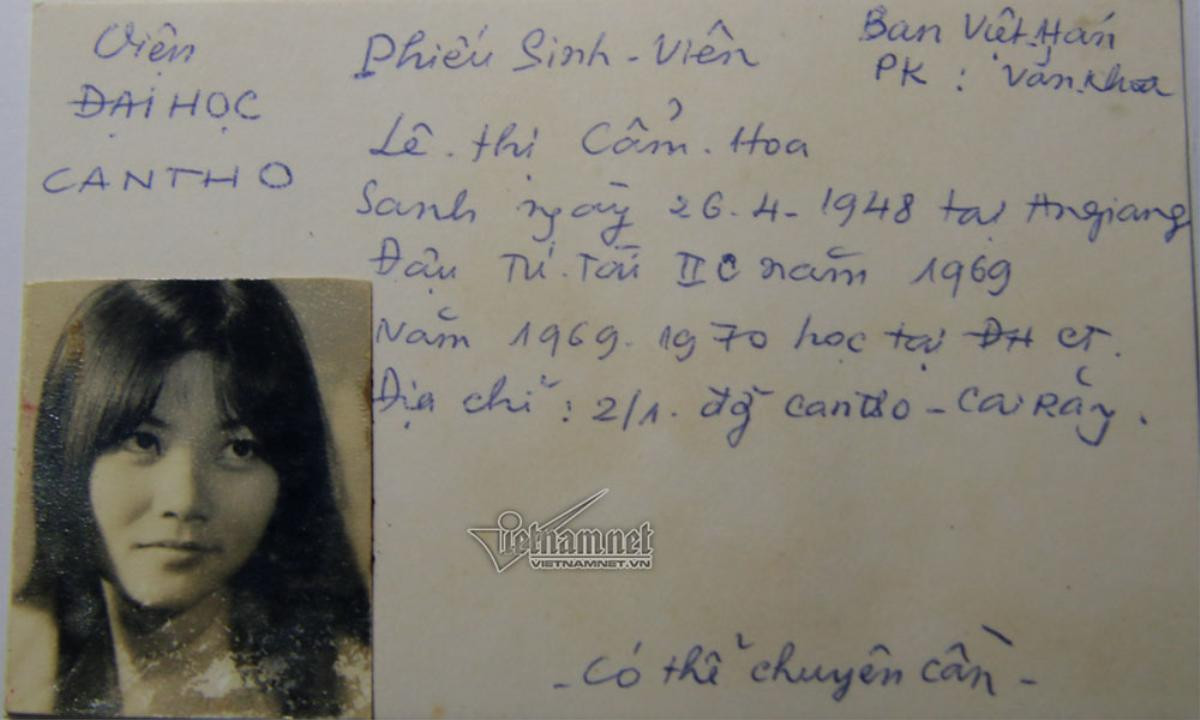 Viện
ĐẠI HỌC
CANTHO
Phiếu Sinh-Viên
Ban Việt.Hán
PK : Văn.Khoa
Lê.thị Cẩm.Hoa
Sanh ngày 26.4-1948 tại Angiang
Đậu Tú.Tài II C năm 1969
Năm 1969.1970 học tại ĐH CT.
Địa chỉ : 2/1. đg cantho - CaiRăng.
Vietnamnet
VIETNAMNET.VN
- Có thể chuyên cần -